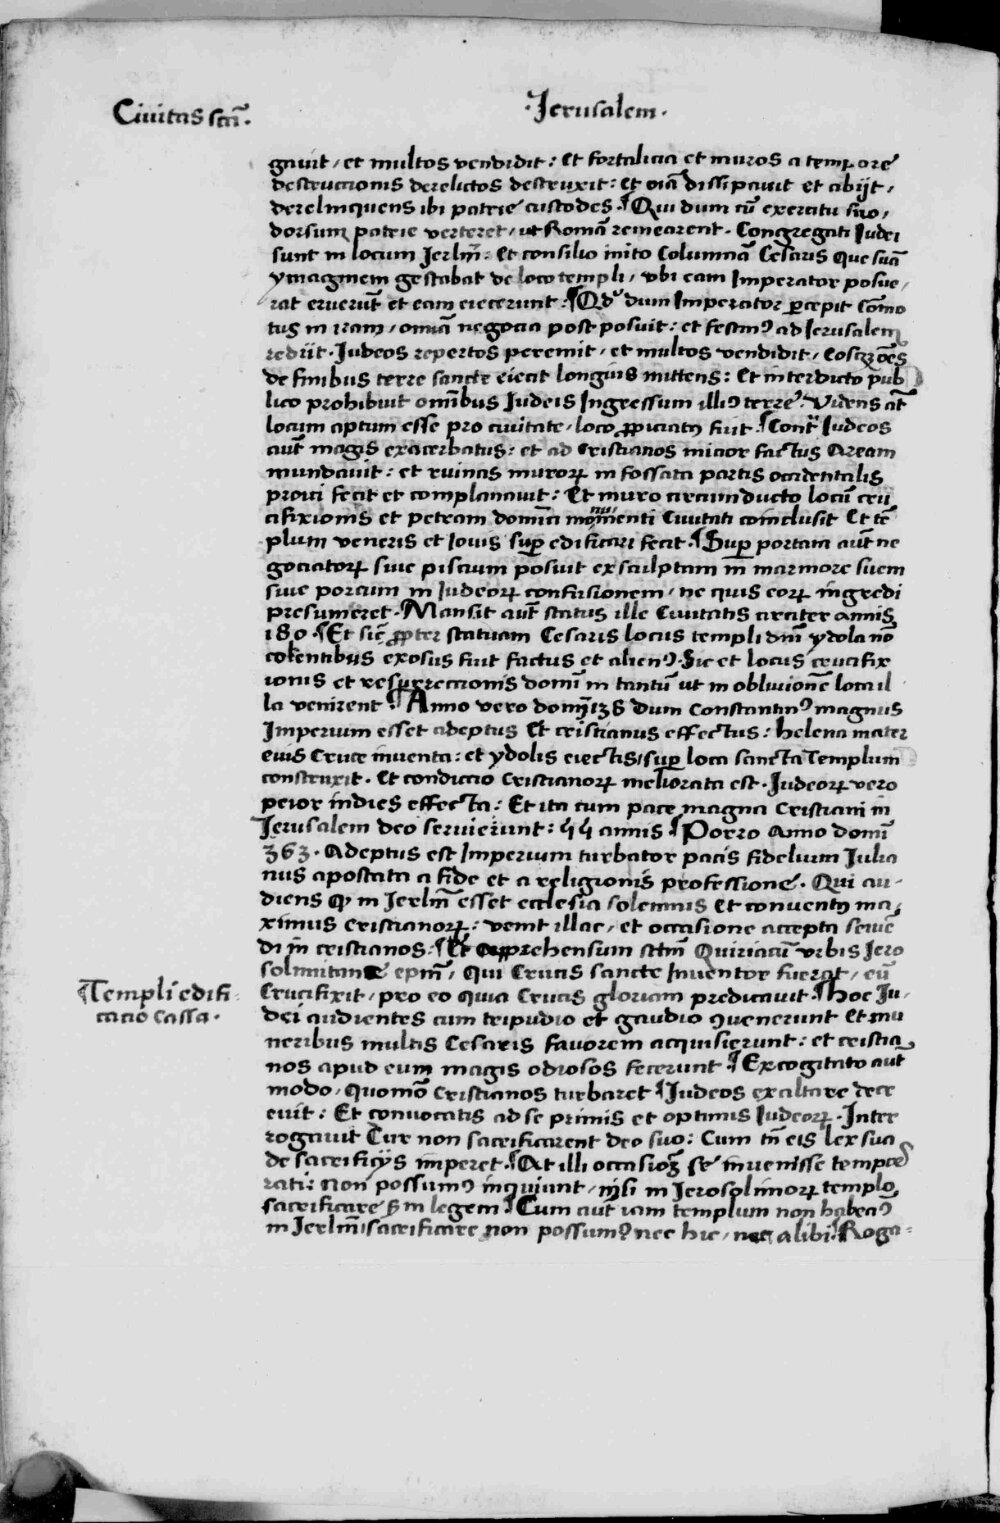 Ciuitas sctā.
·Jerusalem·
gauit / et multos vendidit: Et fortalicia et muros a tempore
destruccionis derelictos destruxit: Et oīa dissipauit et abijt /
derelinquens ibi patrie custodes. ¶ Qui dum cū exercitu suo /
dorsum patrie verteret / ut Romā remearent. Congregati Judei
sunt in locum Jerlm̄: Et consilio inito Columnā Cesaris que suā
ymaginem gestabat de loco templi / vbi eam Imperator posue /
rat eruerūt et eam eiecerunt: ¶ Qd' dum Imperator p̄cepit Cōmo
tus in iram / omīa negocia postposuit: et festinꝰ ad Jerusalem
redijt. Judeos repertos peremit / et multos vendidit / Eosqꝫ oēs
de finibus terre sancte eiecit longius mittens: Et interdicto pub
lico prohibuit omībus Judeis Ingressum illiꝰ terre. Videns āt
locum aptum esse pro ciuitate / loco ꝓpiciatꝰ fuit. ¶ Contͣ Judeos
aut̄ magis exacerbatus: et ad Cristianos micior factus Aream
mundauit: et ruinas muroꝝ in fossata partis occidentalis
proici fecit et complanauit: Et muro circumducto locū cru
cifixionis et petram domīci monumenti Ciuitati conclusit Et tē
plum veneris et Iouis suꝑ edificari fecit. ¶ Suꝑ portam aut̄ ne
gociatoꝝ siue piscium posuit exsculptam in marmore suem
siue porcum in Judeoꝝ confusionem / ne quis eoꝝ ingredi
presumeret. Mansit aut̄ status ille Ciuitatis circiter annis
180. ¶ Et sic ꝓpter statuam Cesaris locus templi dnī ydola nō
colentibus exosus fuit factus et alienꝰ. Sic et locus crucifix
ionis et resurreccionis domī in tantū ut in obliuionē loca il
la venirent ¶ Anno vero domī 138 dum Constantinꝰ magnus
Imperium esset adeptus Et cristianus effectus: helena mater
eius Cruce inuenta: et ydolis eiectis / suꝑ loca sancta Templum
construxit. Et condicio Cristianoꝝ meliorata est. Judeoꝝ vero
peior indies effecta: Et ita cum pace magna Cristiani in
Jerusalem deo seruierunt: 55 annis ¶ Porro Anno domī
363. Adeptus est Imperium turbator pacis fidelium Julia
nus apostata a fide et a religionis professione. Qui au-
diens ꝙ in Jerlm̄ esset ecclesia solemnis Et conuentꝰ ma /
ximus Cristianoꝝ: venit illac / et occasione accepta seuie
di in cristianos: ¶ Et apprehensum sctm̄ Quiriacū vrbis Jero
solimitane epm̄, qui Crucis sancte Inuentor fuerat / eū
Crucifixit / pro eo quia Crucis gloriam predicauit. ¶ hoc Ju-
dei audientes cum tripudio et gaudio ꝯuenerunt Et mu
neribus multis Cesaris fauorem acquisierunt: et cristia
nos apud eum magis odiosos fecerunt. ¶ Excogitato aut̄
modo / quomō Cristianos turbaret ¶ Judeos exaltare decr
euit: Et conuocatis ad se primis et optimis Judeoꝝ. Inter
rogauit Cur non sacrificarent deo suo: Cum tn̄ eis lex sua
de sacrificijs imperet. ¶ At illi occasiōꝫ se inuenisse
rati: non possumꝰ inquiunt / nisi in Jerosolimoꝝ templo
sacrificare ẜm legem ¶ Cum aut̄ iam templum non habeaꝰ
in Jerlm̄ / sacrificare non possumꝰ nec hic / nec alibi. ¶ Roga-
¶ Templi edifi-
cacio Cassa.